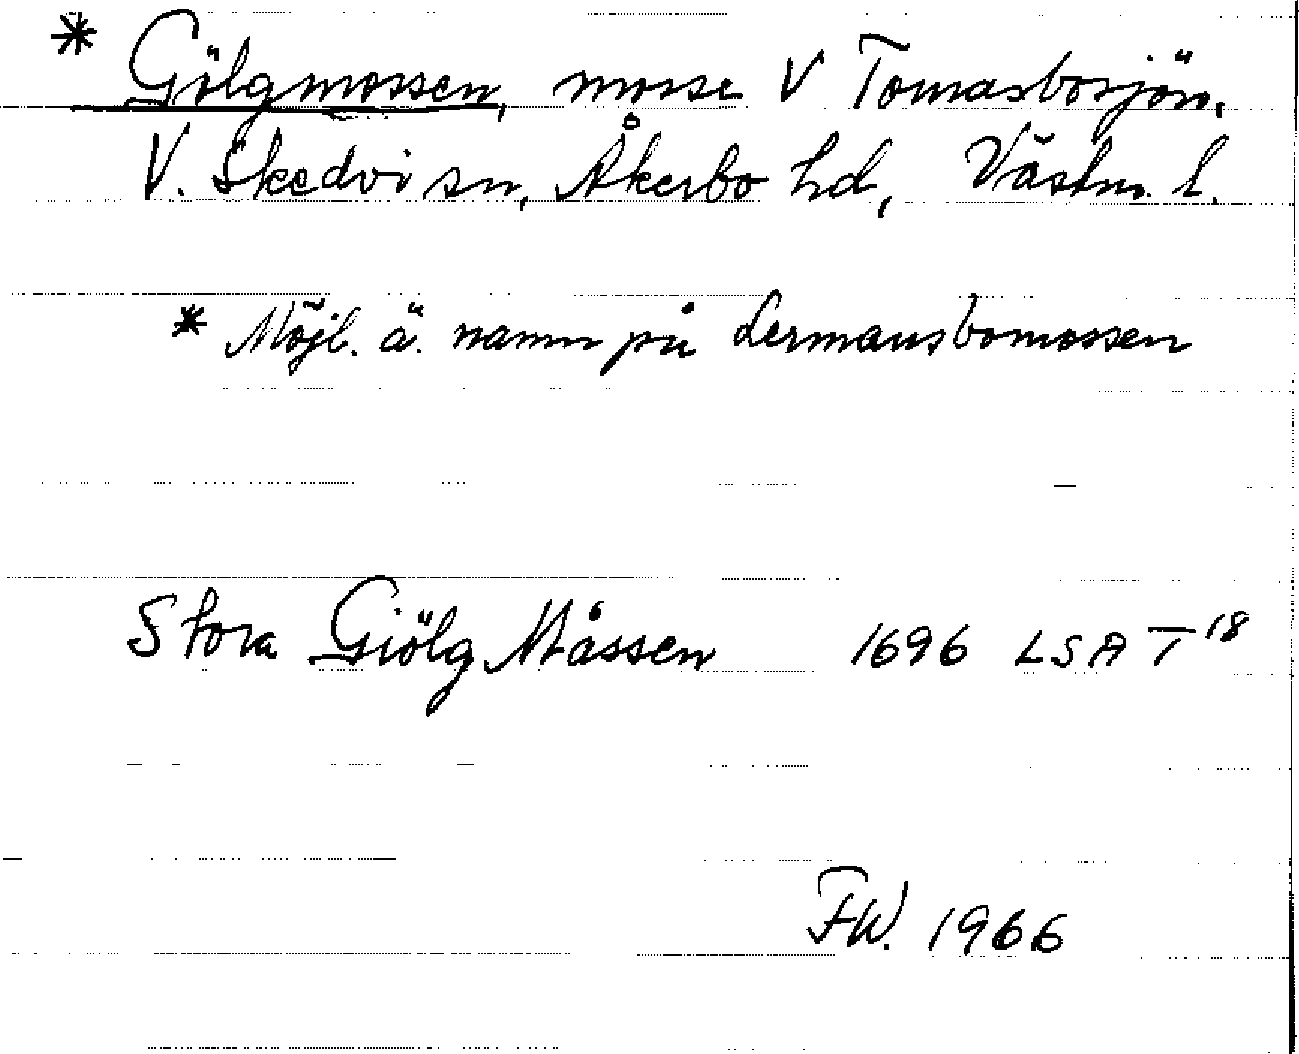 * Gölgmossen, mosse V Tomasbosjön,
V. Skedvi sn, Åkerbo hd, Västm. l.
* Möjl. ä. namn på Lermansbomossen
Stora Giölg Måssen 1696 LSA T 18
FW. 1966